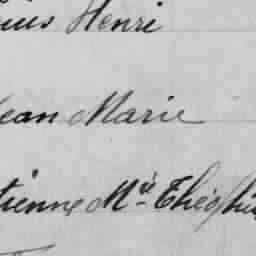 Henri
Jean Marie
tienne Mie Théophi